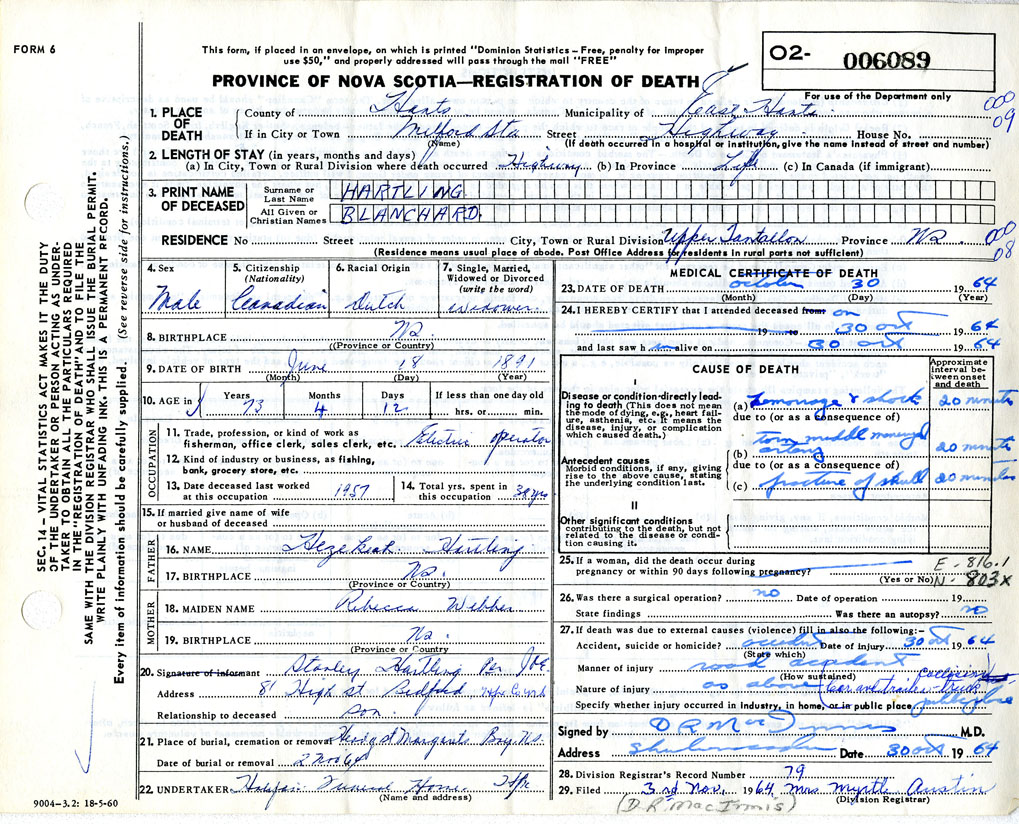 FORM 6
This form, if placed in an envelope, on which is printed "Dominion Statistics – Free, penalty for improper
use $50," and properly addressed will pass through the mail "FREE"
PROVINCE OF NOVA SCOTIA—REGISTRATION OF DEATH
O2- 006089
For use of the Department only
000
09
1. PLACE OF DEATH
County of Hants Municipality of East Hants
If in City or Town Milford Sta Street Highway House No.
(Name) (If death occurred in a hospital or institution, give the name instead of street and number)
2. LENGTH OF STAY (in years, months and days)
(a) In City, Town or Rural Division where death occurred Highway (b) In Province Life (c) In Canada (if immigrant)
3. PRINT NAME OF DECEASED
Surname or Last Name HARTLING
All Given or Christian Names BLANCHARD.
RESIDENCE No Street City, Town or Rural Division Upper Tantallon Province NS.
000
08
(Residence means usual place of abode. Post Office Address for residents in rural parts not sufficient)
4. Sex
Male
5. Citizenship (Nationality)
Canadian
6. Racial Origin
Dutch
7. Single, Married, Widowed or Divorced (write the word)
widower
8. BIRTHPLACE NS.
(Province or Country)
9. DATE OF BIRTH June 18 1891
(Month) (Day) (Year)
10. AGE in Years 73 Months 4 Days 12 If less than one day old hrs. or min.
OCCUPATION
11. Trade, profession, or kind of work as
fisherman, office clerk, sales clerk, etc. operator
12. Kind of industry or business, as fishing,
bank, grocery store, etc.
13. Date deceased last worked
at this occupation 1957
14. Total yrs. spent in
this occupation 38 yrs
15. If married give name of wife
or husband of deceased
FATHER
16. NAME Hezekiah Hartling
17. BIRTHPLACE NS.
(Province or Country)
MOTHER
18. MAIDEN NAME Rebecca Webber
19. BIRTHPLACE NS.
(Province or Country
20. Signature of informant Stanley Hartling Per
Address 81 High st Bedford
Relationship to deceased son.
21. Place of burial, cremation or removal Head of St Margarets Bay. NS.
Date of burial or removal 2 Nov 64
22. UNDERTAKER Halifax Funeral Home Hfx
(Name and address)
9004-3.2: 18-5-60
SEC. 14 – VITAL STATISTICS ACT MAKES IT THE DUTY
OF THE UNDERTAKER OR PERSON ACTING AS UNDER-
TAKER TO OBTAIN ALL THE PARTICULARS REQUIRED
IN THE "REGISTRATION OF DEATH" AND TO FILE THE
SAME WITH THE DIVISION REGISTRAR WHO SHALL ISSUE THE BURIAL PERMIT.
WRITE PLAINLY WITH UNFADING INK. THIS IS A PERMANENT RECORD.
Every item of information should be carefully supplied. (See reverse side for instructions.)
MEDICAL CERTIFICATE OF DEATH
23. DATE OF DEATH october 30 1964
(Month) (Day) (Year)
24. I HEREBY CERTIFY that I attended deceased from on
19 30 oct 1964
and last saw h im alive on 30 oct 1964
CAUSE OF DEATH
Approximate interval between onset and death
I
Disease or condition directly lead-
ing to death (This does not mean
the mode of dying, e.g., heart failure, asthenia, etc. It means the
disease, injury, or complication
which caused death.)
(a) hemorrage & shock 20 minutes
due to (or as a consequence of)
torn middle meningeal
(b) artery 20 minutes
due to (or as a consequence of)
(c) fracture of skull 20 minutes
Antecedent causes
Morbid conditions, if any, giving
rise to the above cause, stating
the underlying condition last.
II
Other significant conditions
contributing to the death, but not
related to the disease or condi-
tion causing it.
25. If a woman, did the death occur during
pregnancy or within 90 days following pregnancy?
(Yes or No)
E - 816.1
N - 803x
26. Was there a surgical operation? no Date of operation 19
State findings Was there an autopsy? no
27. If death was due to external causes (violence) fill in also the following:–
Accident, suicide or homicide? accident Date of injury 30 oct 1964
(State which)
Manner of injury road accident collision
(How sustained)
Nature of injury as above (Car and trailer - truck
Specify whether injury occurred in industry, in home, or in public place public place
Signed by D R MacInnis M.D.
Address Shubenacadie Date 30 oct 1964
28. Division Registrar's Record Number 79
29. Filed 3rd Nov, 1964 Mrs Myrtle Austin
(Division Registrar)
(D.R. MacInnis)